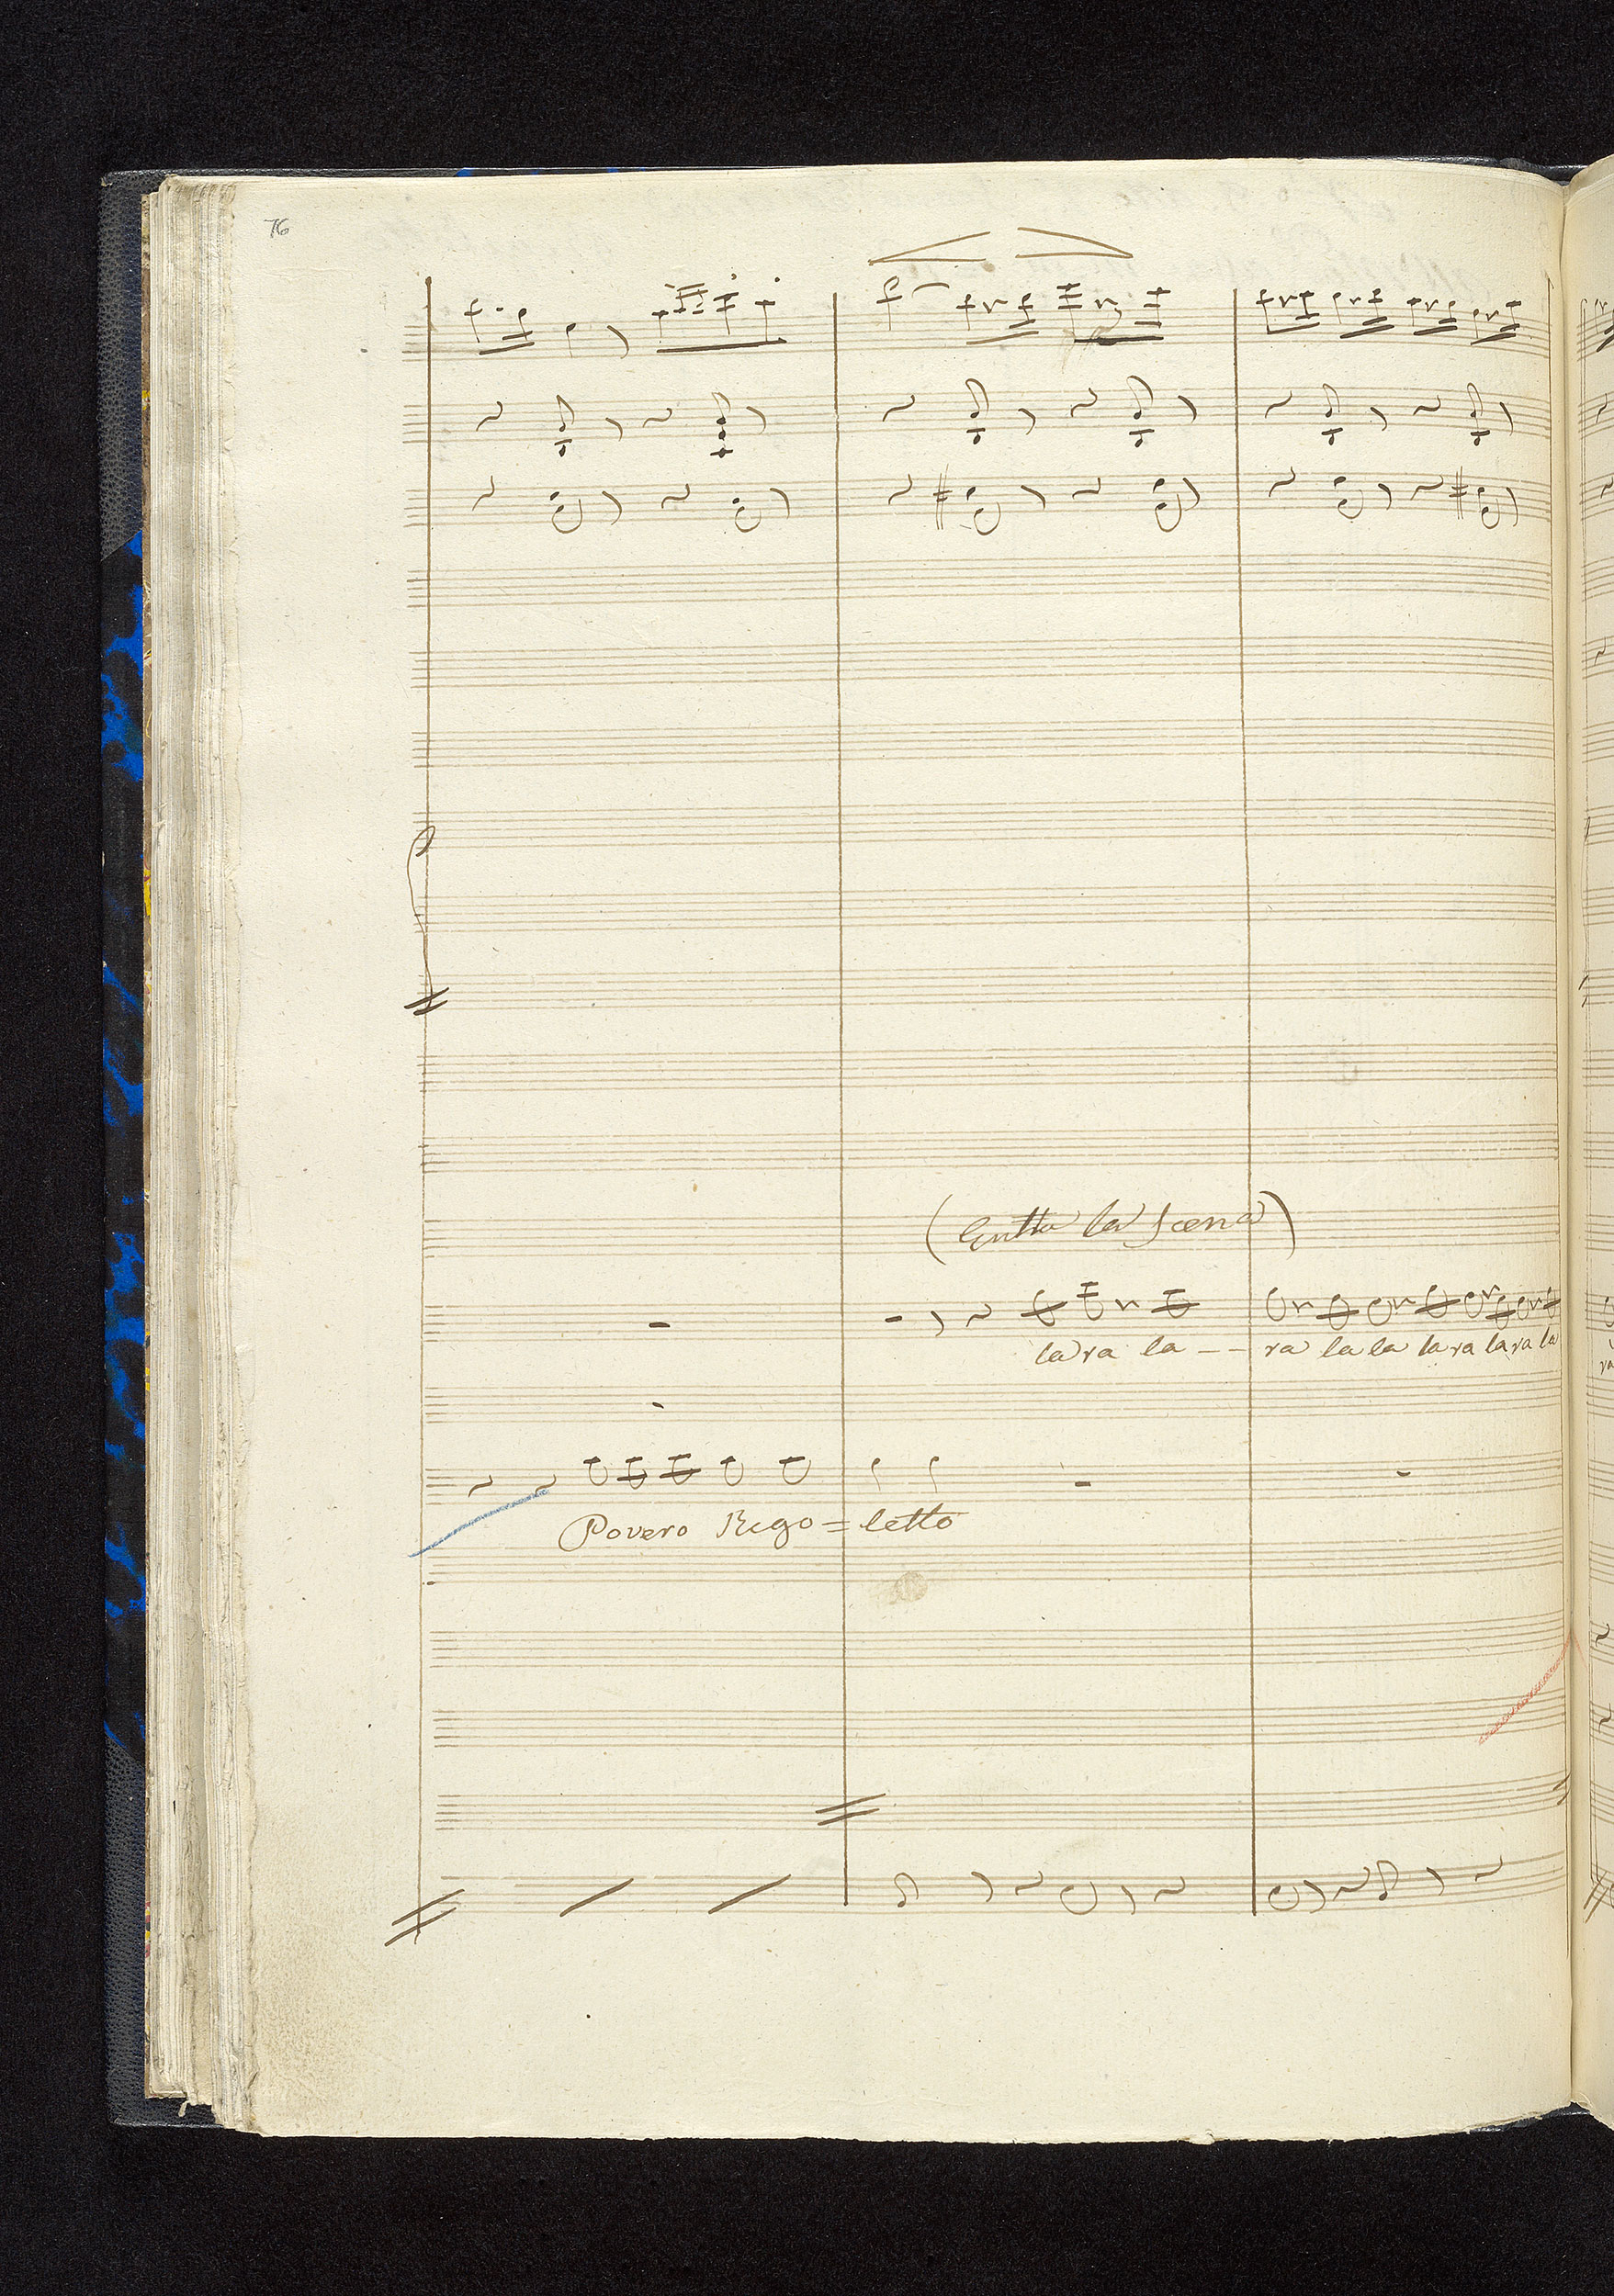 76
(Entra la Scena)
lara la -- ra la la la ra la ra la
Povero Rigo=letto